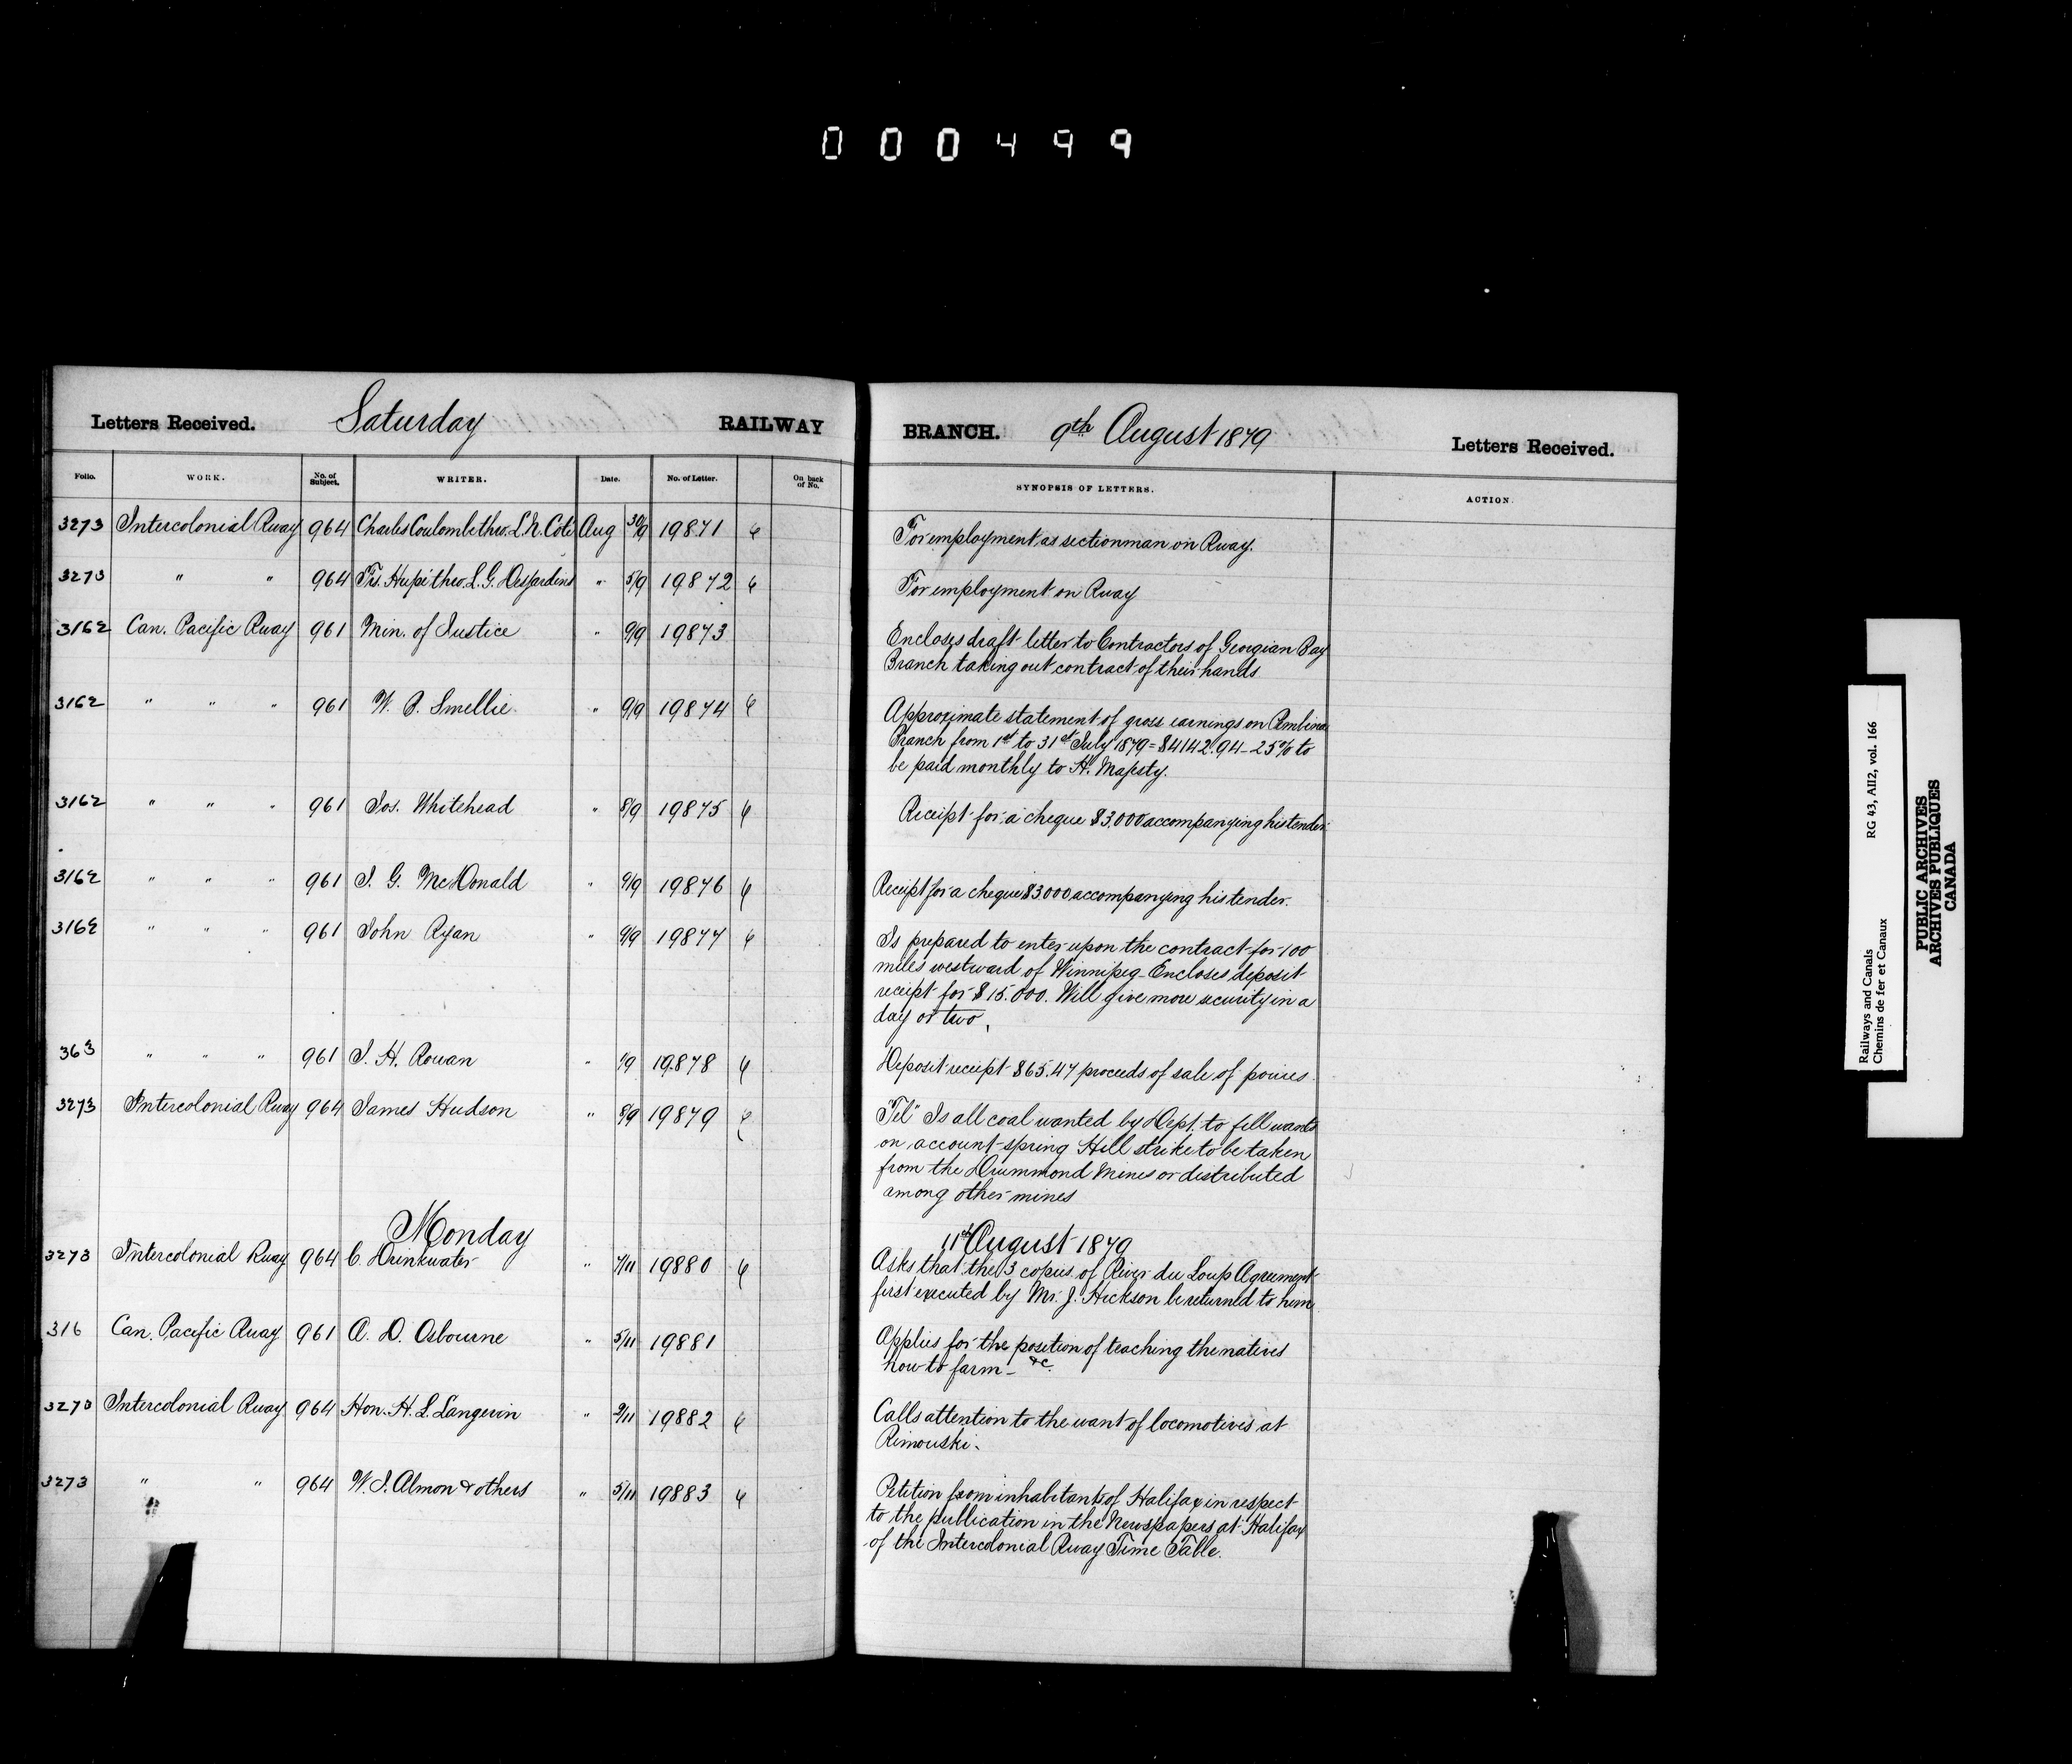 000499
Letters Received. Saturday RAILWAY
Folio. WORK. No. of Subject. WRITER. Date. No. of Letter. On back of No.
3273 Intercolonial Rway 964 Charles Coulombe thro. L.N. Coté Aug 30/9 19871
3273 " " 964 Frs. Hupé thro L.G. Desjardins " 5/9 19872
3162 Can. Pacific Rway 961 Min. of Justice " 9/9 19873
3162 " " " 961 W. B. Smellie " 9/9 19874
3162 " " " 961 Jos. Whitehead " 8/9 19875
3162 " " " 961 J. G. McDonald " 9/9 19876
3162 " " " 961 John Ryan " 9/9 19877
363 " " " 961 J. H. Rowan " 1/9 19878
3273 Intercolonial Rway 964 James Hudson " 8/9 19879
Monday
3273 Intercolonial Rway 964 C. Drinkwater " 7/11 19880
316 Can. Pacific Rway 961 A. D. Osbourne " 5/11 19881
3273 Intercolonial Rway 964 Hon. H. L. Langevin " 9/11 19882
3273 " " 964 W. J. Almon & others " 5/11 19883
BRANCH. 9th August 1879 Letters Received.
SYNOPSIS OF LETTERS. ACTION.
For employment as sectionman on Rway.
For employment on Rway
Encloses draft letter to Contractors of Georgian Bay
Branch taking out contract of their hands
Approximate statement of gross earnings on Pembina
Branch from 1st to 31st July 1879 = $4142.94 - 25% to
be paid monthly to H. Majesty.
Receipt for a cheque $3,000 accompanying his tender
Receipt for a cheque $3000 accompanying his tender.
Is prepared to enter upon the contract for 100
miles westward of Winnipeg. Encloses deposit
receipt for $15.000. Will give more security in a
day or two.
Deposit receipt $65.47 proceeds of sale of ponies
"Tel" Is all coal wanted by Dept. to fill wants
on account spring Hill strike to be taken
from the Drummond Mines or distributed
among other mines
11th August 1879
Asks that the 3 copies of River du Loup Agreement
first executed by Mr. J. Hickson be returned to him
Applies for the position of teaching the natives
how to farm - &c.
Calls attention to the want of locomotives at
Rimouski.
Petition from inhabitants of Halifax in respect
to the publication in the Newspapers at Halifax
of the Intercolonial Rway Time Table.
Railways and Canals RG 43, AII2, vol. 166
Chemins de fer et Canaux
PUBLIC ARCHIVES
ARCHIVES PUBLIQUES
CANADA